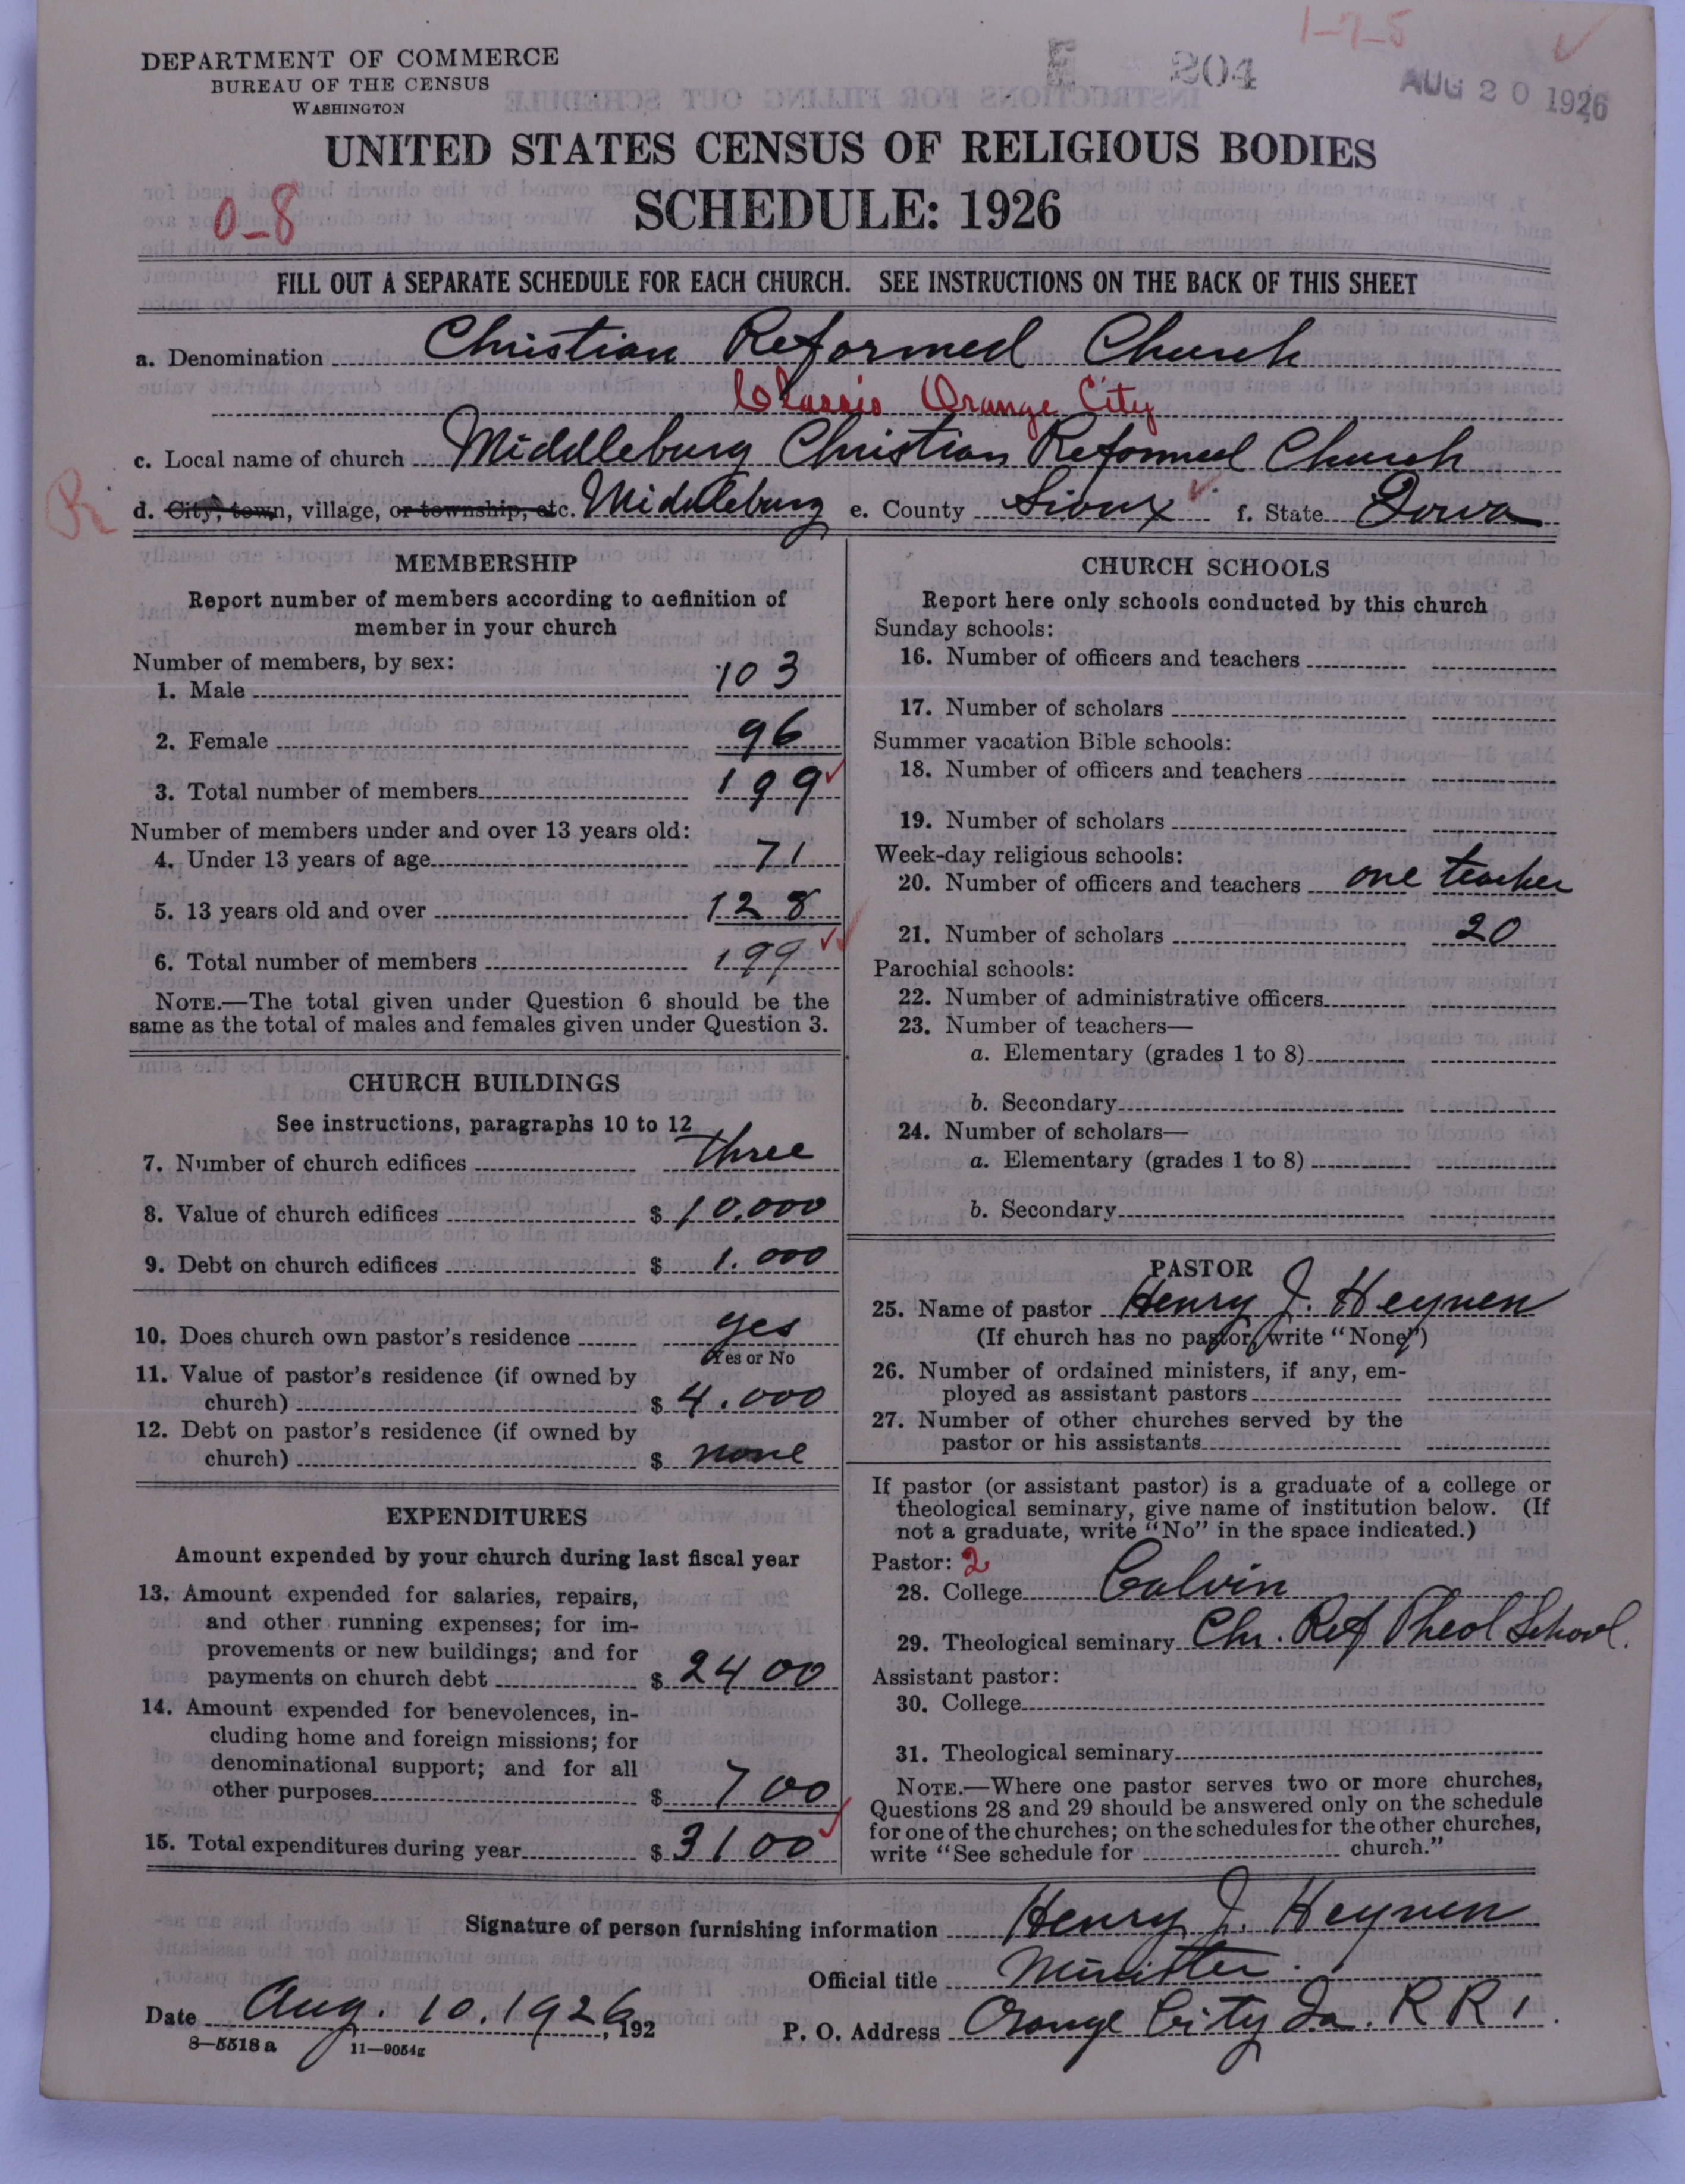 1-7-5
DEPARTMENT OF COMMERCE
BUREAU OF THE CENSUS
WASHINGTON
204
AUG 20 1926
UNITED STATES CENSUS OF RELIGIOUS BODIES
SCHEDULE: 1926
0-8
FILL OUT A SEPARATE SCHEDULE FOR EACH CHURCH. SEE INSTRUCTIONS ON THE BACK OF THIS SHEET
a. Denomination Christian Reformed Church
Classis Orange City
c. Local name of church Middleburg Christian Reformed Church
R
d. City, town, village, or township, etc. Middleburg e. County Sioux f. State Iowa
MEMBERSHIP
Report number of members according to definition of
member in your church
Number of members, by sex:
1. Male 103
2. Female 96
3. Total number of members 199
Number of members under and over 13 years old:
4. Under 13 years of age 71
5. 13 years old and over 128
6. Total number of members 199
NOTE.—The total given under Question 6 should be the
same as the total of males and females given under Question 3.
CHURCH BUILDINGS
See instructions, paragraphs 10 to 12
7. Number of church edifices three
8. Value of church edifices $ 10.000
9. Debt on church edifices $ 1.000
10. Does church own pastor's residence yes
Yes or No
11. Value of pastor's residence (if owned by
church) $ 4.000
12. Debt on pastor's residence (if owned by
church) $ none
EXPENDITURES
Amount expended by your church during last fiscal year
13. Amount expended for salaries, repairs,
and other running expenses; for im-
provements or new buildings; and for
payments on church debt $ 2400
14. Amount expended for benevolences, in-
cluding home and foreign missions; for
denominational support; and for all
other purposes $ 700
15. Total expenditures during year $ 3100
CHURCH SCHOOLS
Report here only schools conducted by this church
Sunday schools:
16. Number of officers and teachers
17. Number of scholars
Summer vacation Bible schools:
18. Number of officers and teachers
19. Number of scholars
Week-day religious schools:
20. Number of officers and teachers one teacher
21. Number of scholars 20
Parochial schools:
22. Number of administrative officers
23. Number of teachers—
a. Elementary (grades 1 to 8)
b. Secondary
24. Number of scholars—
a. Elementary (grades 1 to 8)
b. Secondary
PASTOR
25. Name of pastor Henry J. Heynen
(If church has no pastor, write "None")
26. Number of ordained ministers, if any, em-
ployed as assistant pastors
27. Number of other churches served by the
pastor or his assistants
If pastor (or assistant pastor) is a graduate of a college or
theological seminary, give name of institution below. (If
not a graduate, write "No" in the space indicated.)
Pastor: 2
28. College Calvin
29. Theological seminary Chr. Ref Theol School.
Assistant pastor:
30. College
31. Theological seminary
NOTE.—Where one pastor serves two or more churches,
Questions 28 and 29 should be answered only on the schedule
for one of the churches; on the schedules for the other churches,
write "See schedule for church."
Signature of person furnishing information Henry J. Heynen
Official title Minister.
Date Aug. 10. 1926, 192
P. O. Address Orange City Ia. R R 1.
8—5518 a 11—9054g